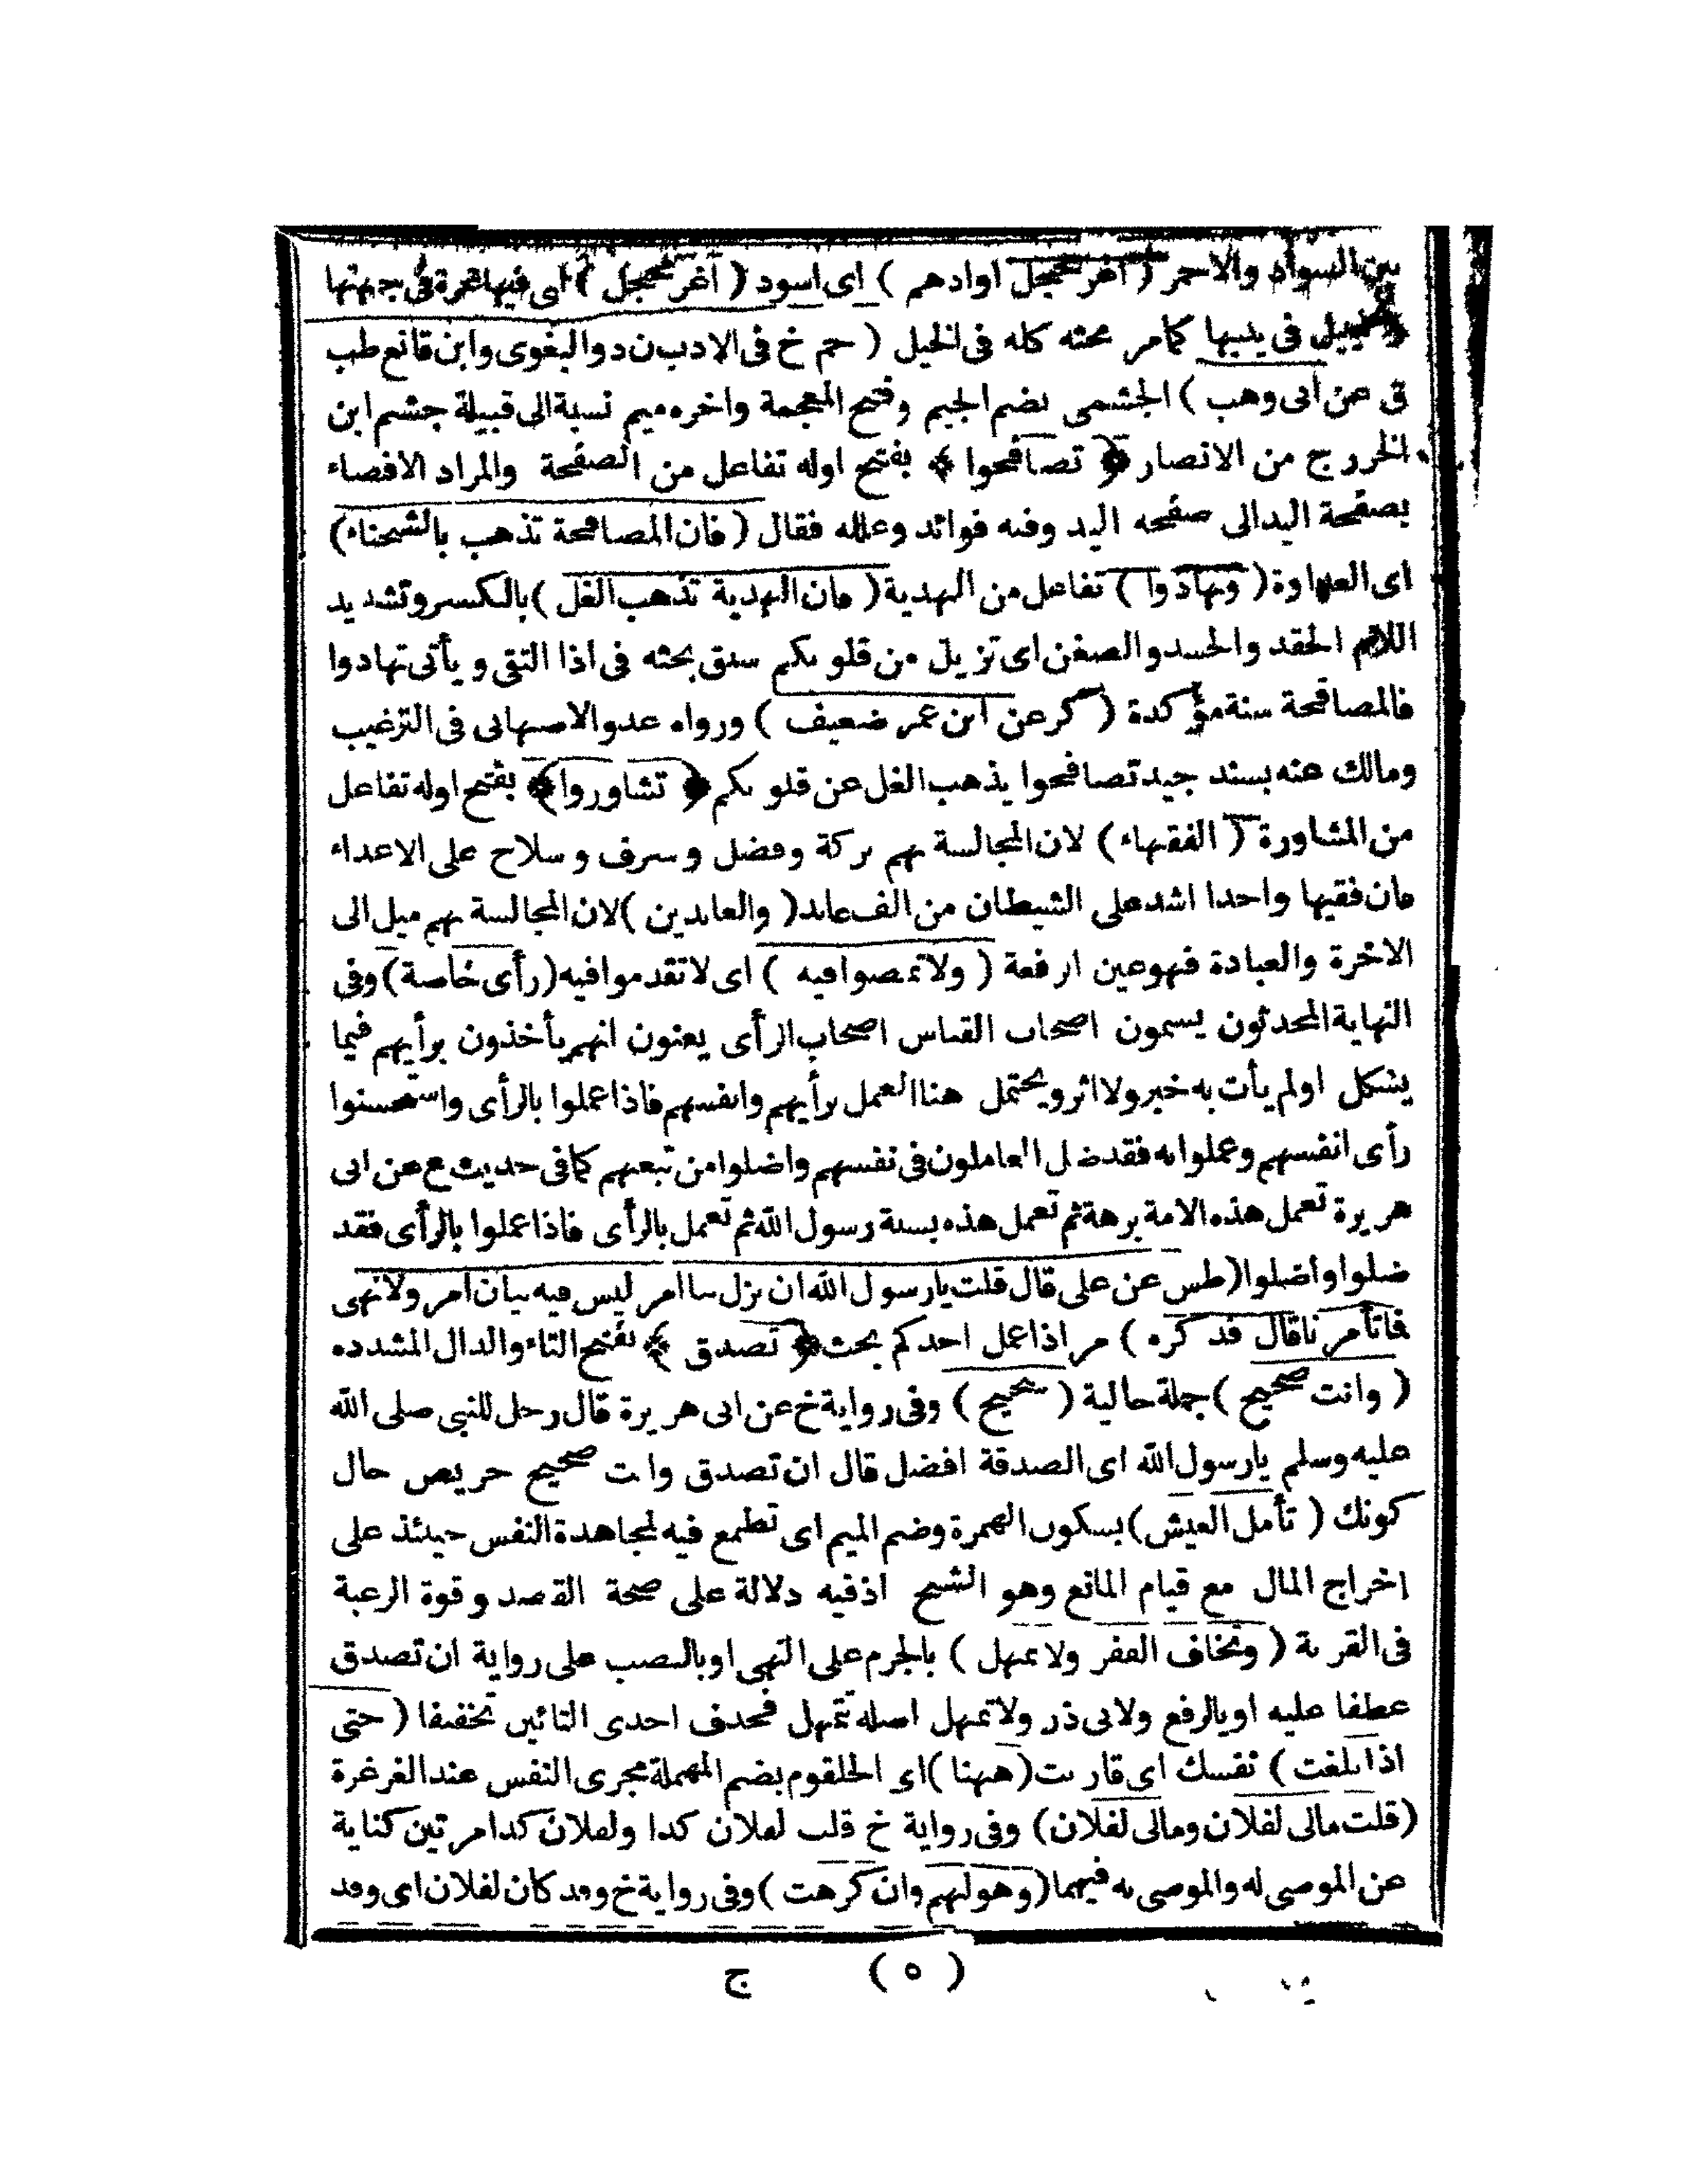 بين السواد والاحمر ( اغر محجل اوادهم ) اى اسود ( اغر محجل ) اى فيها غرة فى جبهتها
فى يديها كمامر بحثه كله فى الخيل ( حم خ فى الادب ن د والبغوى وابن قانع طب
ق عن ابى وهب ) الجشمى بضم الجيم وفتح المعجمة واخره ميم نسبة الى قبيلة جشم ابن
الخزرج من الانصار ﴿ تصافحوا ﴾ بفتح اوله تفاعل من الصفحة والمراد الافضاء
بصفحة اليد الى صفحه اليد وفيه فوائد وعلله فقال ( فان المصافحة تذهب بالشحناء )
اى العداوة ( وتهادوا ) تفاعل من الهدية ( فان الهدية تذهب الغل ) بالكسر وتشديد
اللام الحقد والحسد والضغن اى تزيل من قلوبكم سبق بحثه فى اذا التقى ويأتى تهادوا
فالمصافحة سنة مؤكدة ( كر عن ابن عمر ضعيف ) ورواه عد والاصبهانى فى الترغيب
ومالك عنه بسند جيد تصافحوا يذهب الغل عن قلوبكم ﴿ تشاوروا ﴾ بفتح اوله تفاعل
من المشاورة ( الفقهاء ) لان المجالسة بهم بركة وفضل وشرف وسلاح على الاعداء
فان فقيها واحدا اشد على الشيطان من الف عابد ( والعابدين ) لان المجالسة بهم ميل الى
الاخرة والعبادة فهو عين ارفعة ( ولا تمضوا فيه ) اى لا تقدموا فيه ( رأى خاصة ) وفى
النهاية المحدثون يسمون اصحاب القياس اصحاب الرأى يعنون انهم يأخذون برأيهم فيما
يشكل اولم يأت به خبر ولا اثر ويحتمل هنا العمل برأيهم وانفسهم فاذا عملوا بالرأى واستحسنوا
رأى انفسهم وعملوا به فقد ضل العاملون فى نفسهم واضلوا من تبعهم كما فى حديث ع عن ابى
هريرة تعمل هذه الامة برهة ثم تعمل هذه بسنة رسول الله ثم تعمل بالرأى فاذا عملوا بالرأى فقد
ضلوا واضلوا ( طس عن على قال قلت يارسول الله ان نزل بنا امر ليس فيه بيان امر ولا نهى
فاتأمرنا قال فذكره ) مر اذا عمل احدكم بحث ﴿ تصدق ﴾ بفتح التاء والدال المشدده
( وانت صحيح ) جملة حالية ( شحيح ) وفى رواية خ عن ابى هريرة قال رجل للنبى صلى الله
عليه وسلم يارسول الله اى الصدقة افضل قال ان تصدق وانت صحيح حريص حال
كونك ( تأمل العيش ) بسكون الهمزة وضم الميم اى تطمع فيه لمجاهدة النفس حينئذ على
اخراج المال مع قيام المانع وهو الشح اذفيه دلالة على صحة القصد وقوة الرغبة
فى القربة ( وتخاف الفقر ولا تمهل ) بالجزم على النهى او بالنصب على رواية ان تصدق
عطفا عليه او بالرفع ولابى ذر ولا تمهل اصله تتمهل فحذف احدى التائين تخفيفا ( حتى
اذا بلغت ) نفسك اى قاربت ( ههنا ) اى الحلقوم بضم المهملة مجرى النفس عند الغرغرة
( قلت مالى لفلان ومالى لفلان ) وفى رواية خ قلت لفلان كذا ولفلان كذا مرتين كناية
عن الموصى له والموصى به فيهما ( وهو لهم وان كرهت ) وفى رواية خ وقد كان لفلان اى وقد
( ٥ ) ج